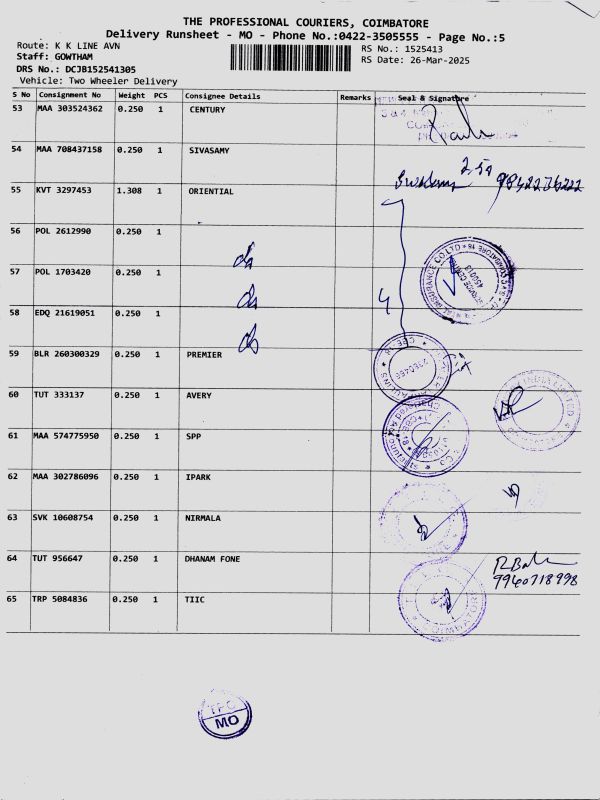 THE PROFESSIONAL COURIERS, COIMBATORE
Delivery Runsheet - MO - Phone No.:0422-3505555 - Page No.:5
Route: K K LINE AVN
Staff: GOWTHAM
DRS No.: DCJB152541305
Vehicle: Two Wheeler Delivery
RS No.: 1525413
RS Date: 26-Mar-2025
S No Consignment No Weight PCS Consignee Details Remarks Seal & Signature
53 MAA 303524362 0.250 1 CENTURY
54 MAA 708437158 0.250 1 SIVASAMY
55 KVT 3297453 1.308 1 ORIENTIAL
56 POL 2612990 0.250 1
57 POL 1703420 0.250 1
58 EDQ 21619051 0.250 1
59 BLR 260300329 0.250 1 PREMIER
60 TUT 333137 0.250 1 AVERY
61 MAA 574775950 0.250 1 SPP
62 MAA 302786096 0.250 1 IPARK
63 SVK 10608754 0.250 1 NIRMALA
64 TUT 956647 0.250 1 DHANAM FONE
9940718998
65 TRP 5084836 0.250 1 TIIC
TPC
MO